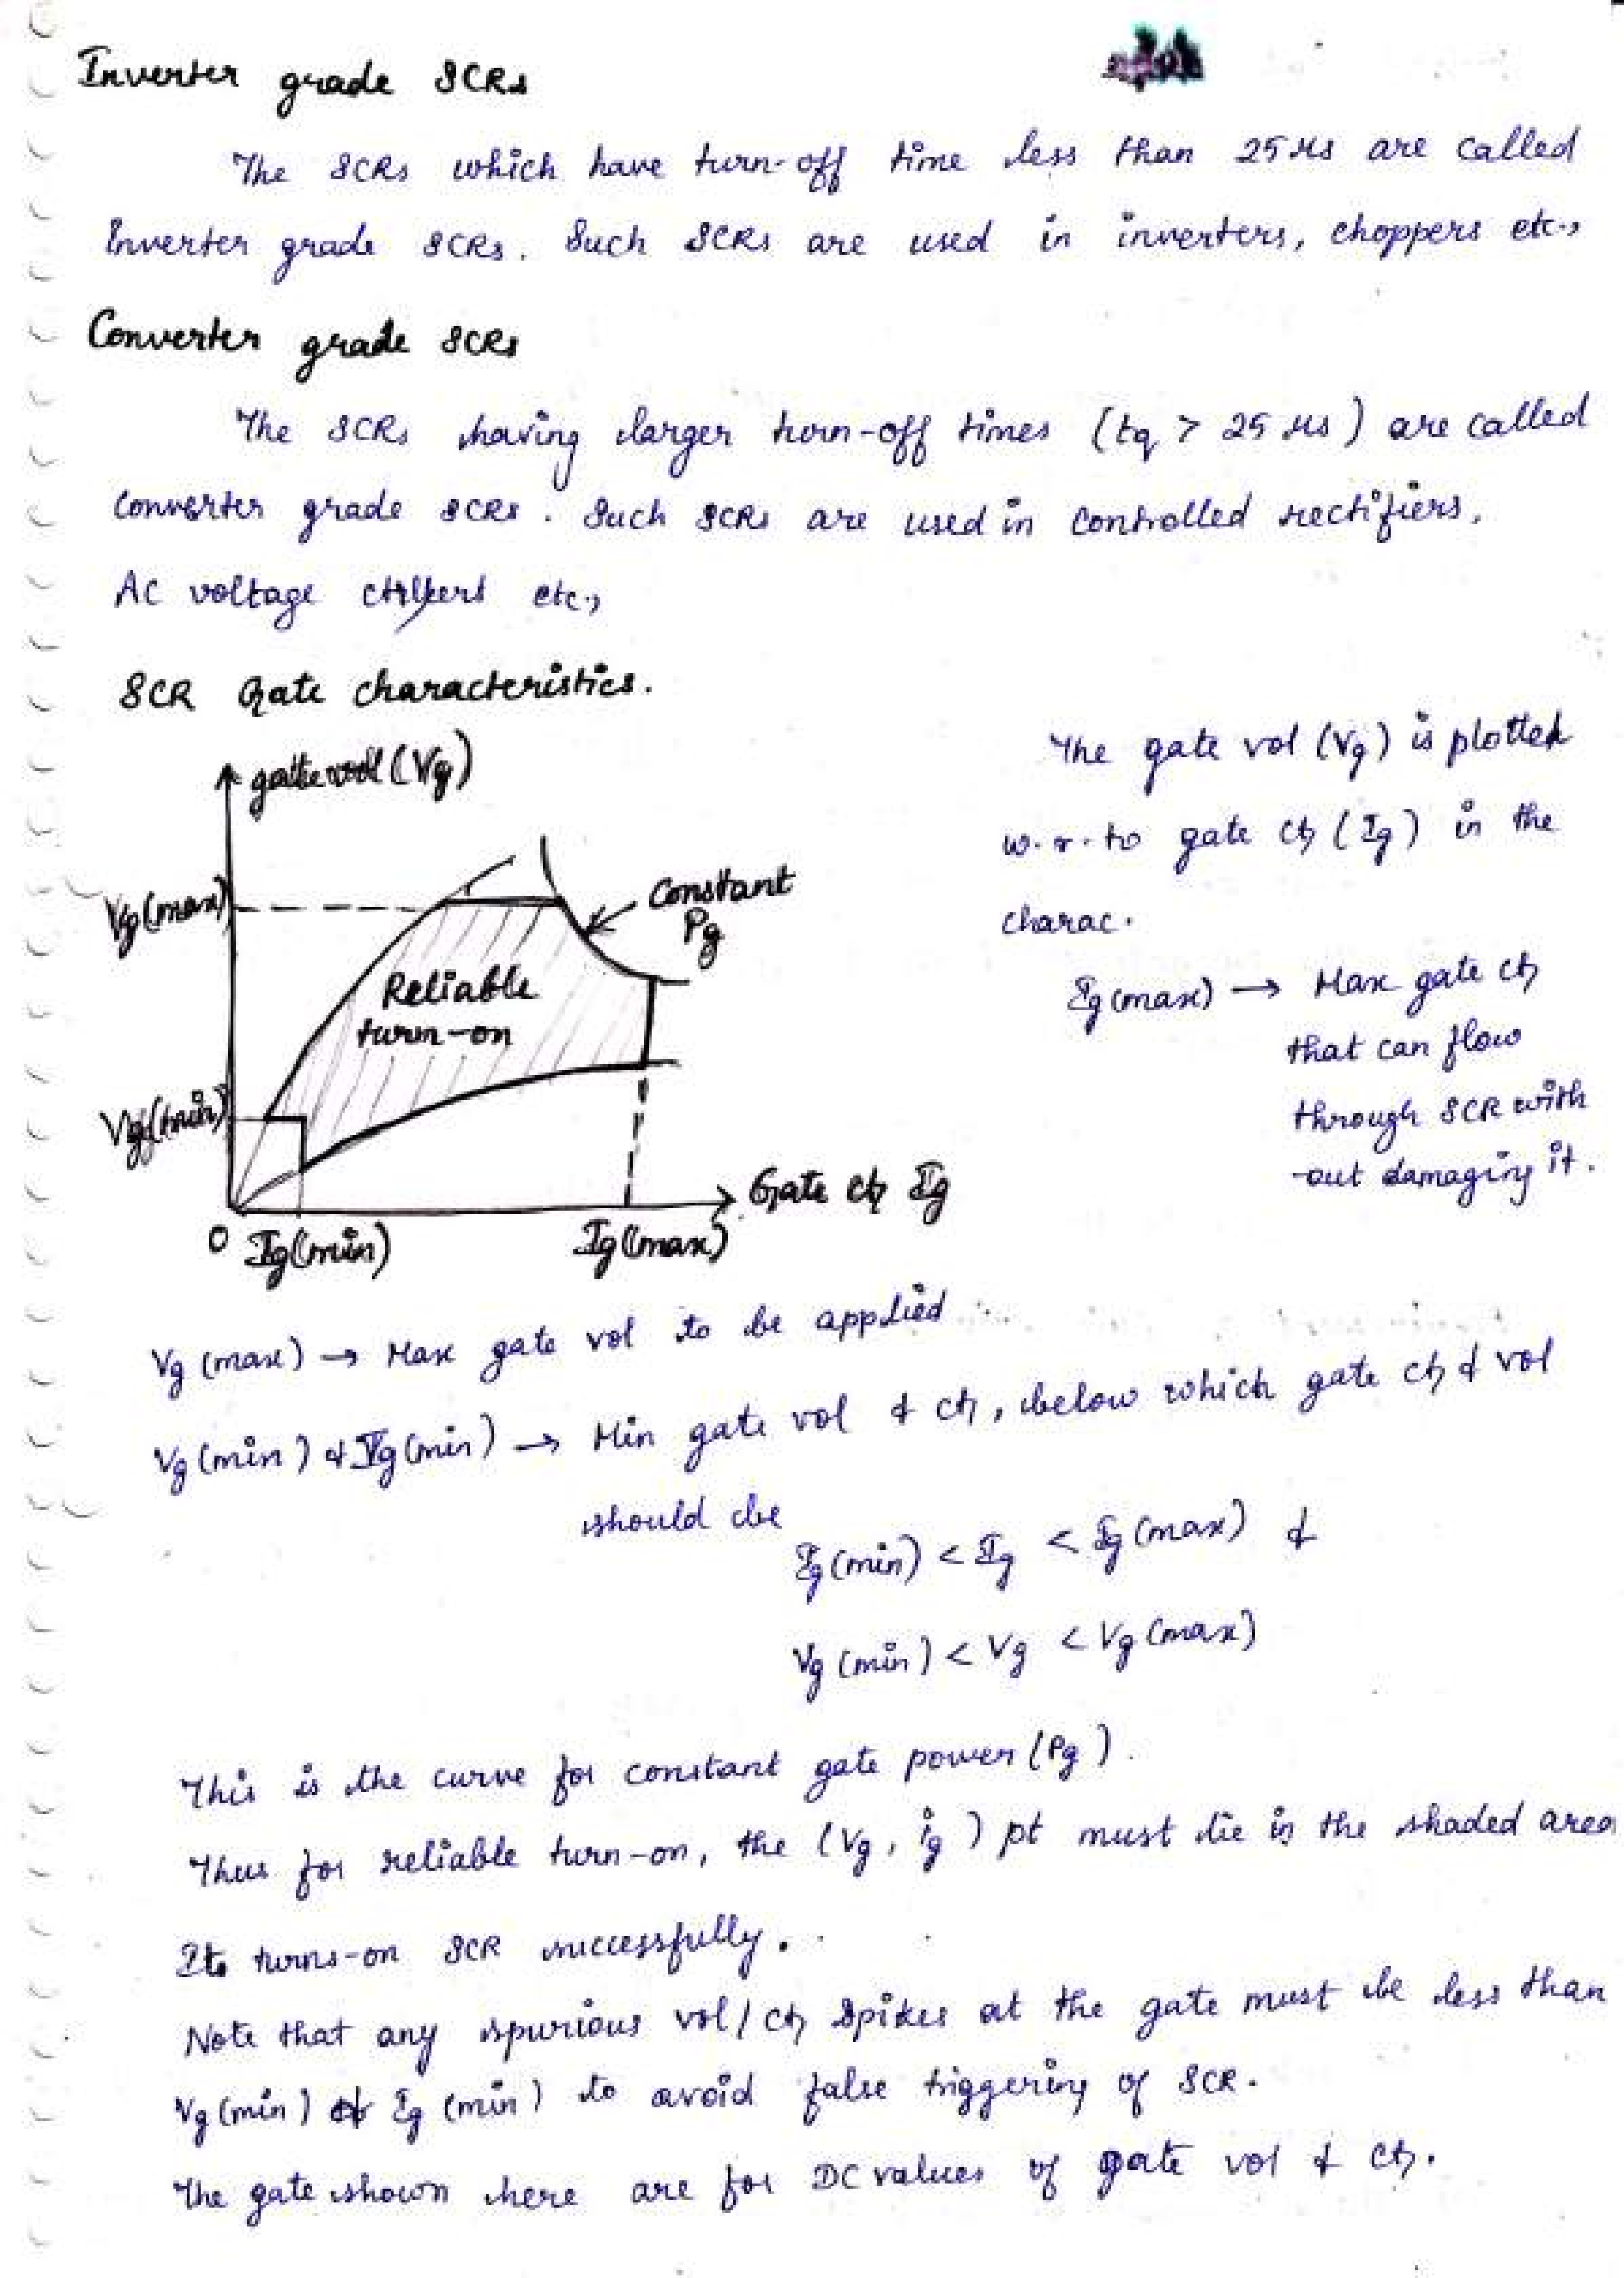 Inverter grade SCRs
The SCRs which have turn-off time less than 25 μs are called
Inverter grade SCRs. Such SCRs are used in inverters, choppers etc.,
Converter grade SCRs
The SCRs having larger turn-off times (tq > 25 μs) are called
Converter grade SCRs. Such SCRs are used in controlled rectifiers,
AC voltage etc.,
SCR Gate characteristics.
gate vol (Vg)
Vg(max)
Constant
Pg
Reliable
turn-on
Vg(min)
Gate ct Ig
0 Ig(min) Ig(max)
The gate vol (Vg) is plotted
w.r.to gate ct (Ig) in the
charac.
Ig(max) → Max gate ct
that can flow
through SCR with
-out damaging it.
Vg (max) → Max gate vol to be applied
Vg (min) & Ig (min) → Min gate vol & ct, below which gate ct & vol
should be
Ig (min) < Ig < Ig (max) &
Vg (min) < Vg < Vg (max)
This is the curve for constant gate power (Pg).
Thus for reliable turn-on, the (Vg, ig) pt must lie in the shaded area
It turns-on SCR successfully.
Note that any spurious vol / ct spikes at the gate must be less than
Vg (min) & Ig (min) to avoid false triggering of SCR.
The gate shown here are for DC values of gate vol & ct.